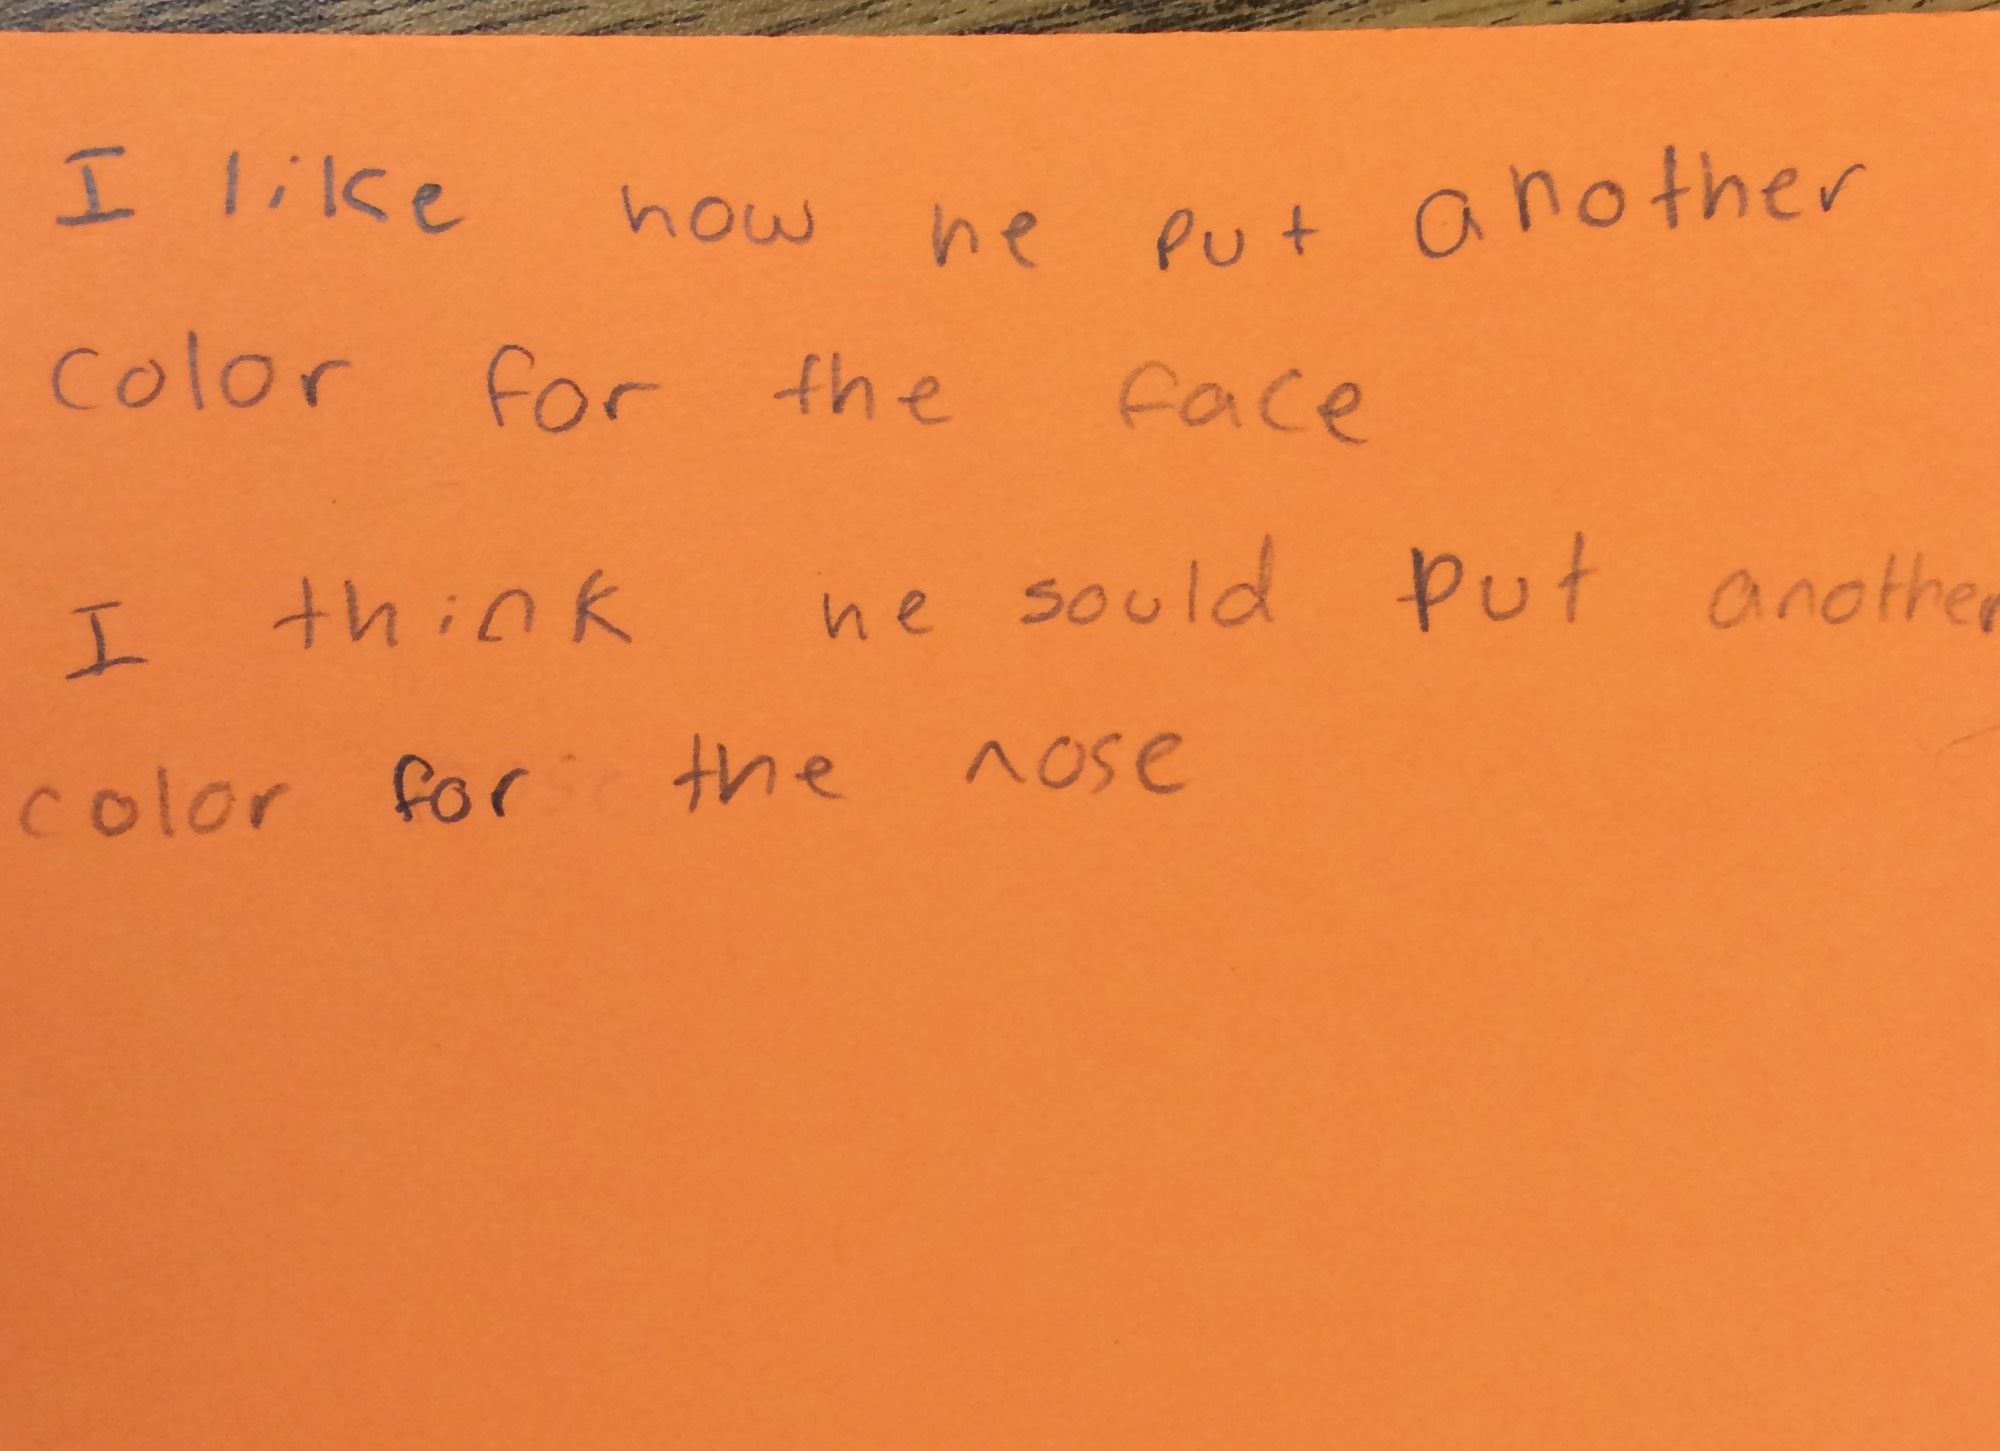 I like how he put another
color for the face
I think he sould put another
color for the nose